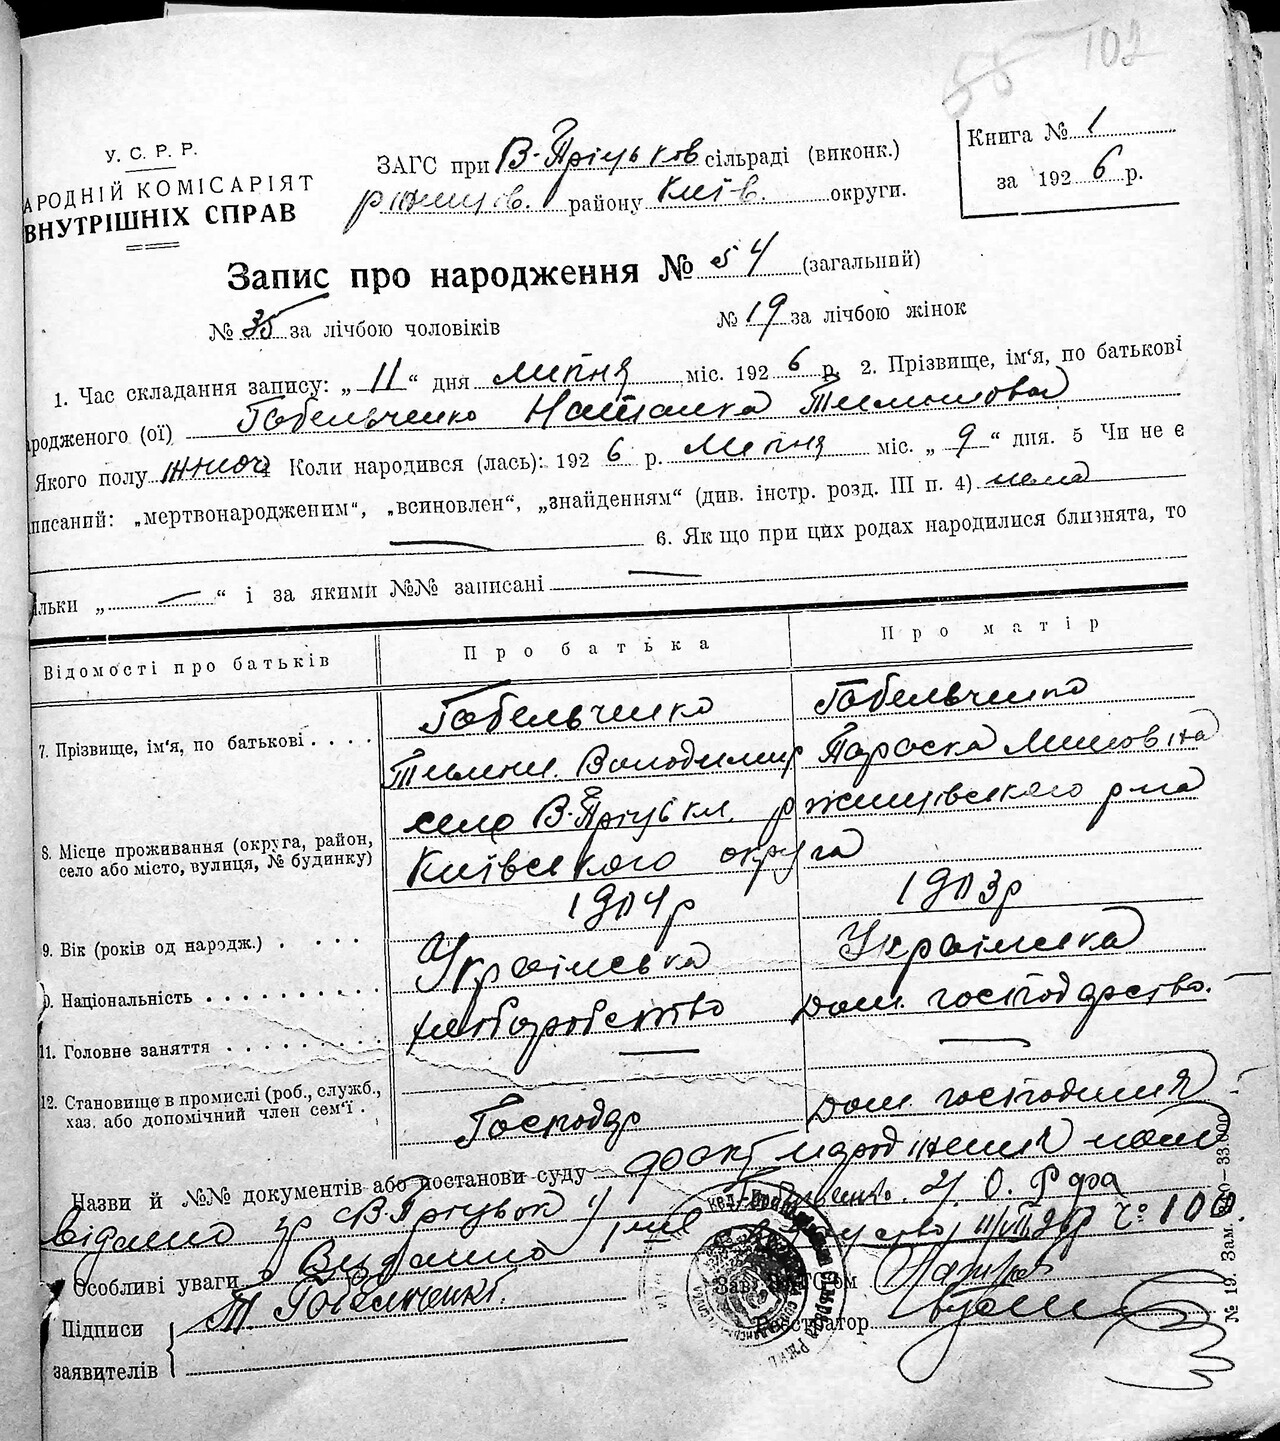 55 102
У. С. Р. Р.
АРОДНІЙ КОМІСАРІЯТ
ВНУТРІШНІХ СПРАВ
ЗАГС при В-Пріцьков сільраді (виконк.)
ржищов. району Київ. округи.
Книга № 1
за 1926 р.
Запис про народження № 54 (загальний)
№ 35 за лічбою чоловіків № 19 за лічбою жінок
1. Час складання запису: „11“ дня липня міс. 1926 р. 2. Прізвище, ім‘я, по батькові
родженого (ої) Гобельченко Наталка Тимошова
Якого полу жіноч Коли народився (лась): 1926 р. липня міс. „9“ дня. 5 Чи не є
писаний: „мертвонародженим“, „всиновлен“, „знайденням“ (див. інстр. розд. III п. 4) нема
6. Як що при цих родах народилися близнята, то
ільки „ — “ і за якими №№ записані —
Відомості про батьків Про батька Про матір
7. Прізвище, ім‘я, по батькові . . . . Гобельченко Гобельченко
Тимош. Володимир Параска
8. Місце проживання (округа, район, село або місто, вулиця, № будинку) село В-Пріцьки. ржищівського р-на
Київського округа
9. Вік (років од народж.) . . . . 1904р 1903р
0. Національність . . . . . . . . . . Українська Українська
11. Головне заняття . . . . . . . . . хліборобство Дом. господарство.
12. Становище в промислі (роб., служб., хаз. або допомічний член сем‘ї . — —
Господар Дом. господиня
Назви й №№ документів або постанови суду факт народження
відано гр В-Пріцьок Гобельченко
Особливі уваги Видано № 100
Зав. ЗАГС‘ом
Підписи заявителів { Т Гобельченко.
Реєстратор
№ 19. Зам. —33.000